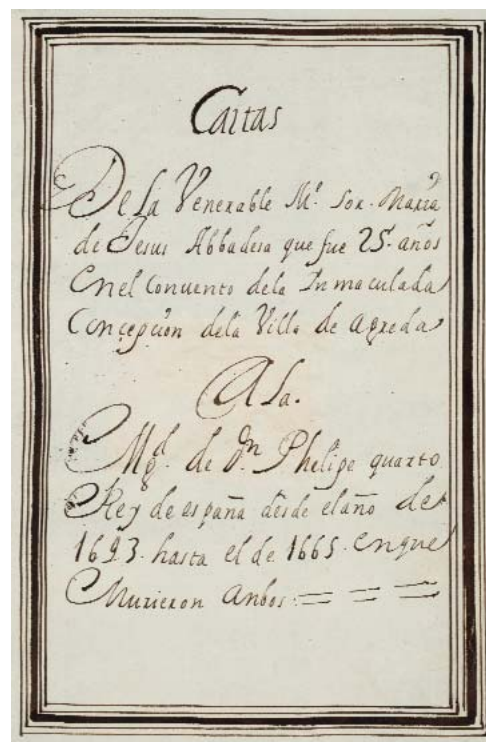 Cartas
De la Venerable M.e Sor. Maria
de Jesus Abbadesa que fue 25. años
en el Convento dela Inmaculada
Concepcion dela Villa de agreda
A La.
Mg.d de D.n Phelipe quarto
Rey de españa desde el año de
1643. hasta el de 1665. en que
Murieron anbos: